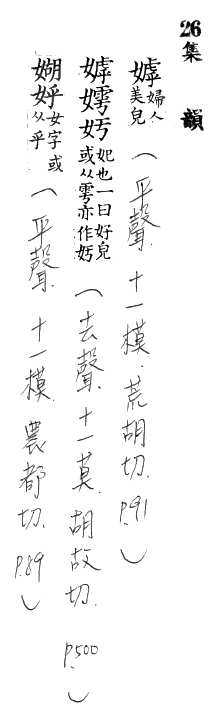 26集韻
嫭婦人美皃（平聲．十一模．荒胡切．P.91）
嫭嫮㚥妃也一曰好皃或从雩亦作㚥（去聲．十一莫．胡故切．P.500）
㜅㛿女字或从乎（平聲．十一模．農都切．P.89）